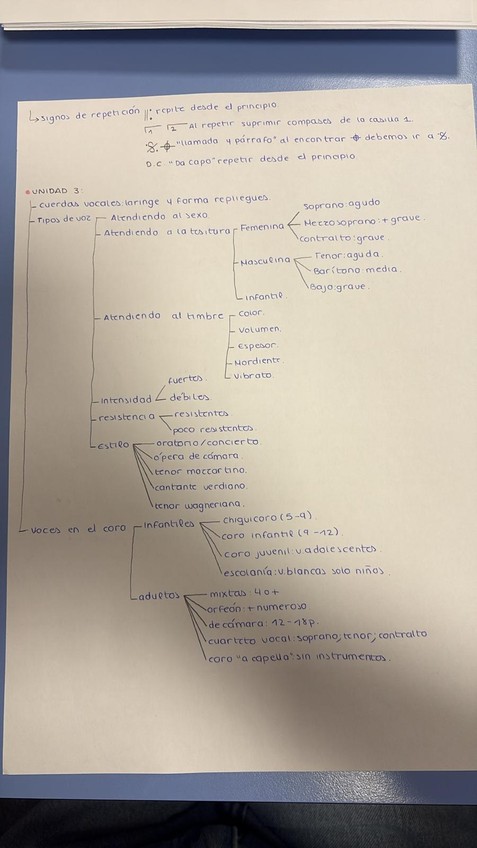 ↳ signos de repetición ||: repite desde el principio.
⌈1 ⌈2 Al repetir suprimir compases de la casilla 1.
𝄋 𝄌 "llamada y párrafo" al encontrar 𝄌 debemos ir a 𝄋.
D.C. "Da capo" repetir desde el principio.
• UNIDAD 3:
cuerdas vocales: laringe y forma repliegues.
Tipos de voz
Atendiendo al sexo.
Atendiendo a la tesitura
Femenina
soprano: agudo
Mezzosoprano: + grave.
contralto: grave
Masculina
Tenor: aguda.
Barítono media.
Bajo: grave.
Infantil.
Atendiendo al timbre
color.
volumen.
Espesor.
Mordiente
Vibrato.
Intensidad
fuertes.
debiles.
resistencia
resistentes
poco resistentes
Estilo
oratorio/concierto.
ópera de cámara.
tenor mozartino.
cantante verdiano.
tenor wagneriana.
voces en el coro
infantiles
chiquicoro (5-9).
coro infantil (9-12).
coro juvenil: v. adolescentes.
escolanía: v. blancas solo niños.
adultos
mixtas: 40+
orfeón: + numeroso
de cámara: 12-18p.
cuarteto vocal: soprano, tenor; contralto
coro "a capella" sin instrumentos.